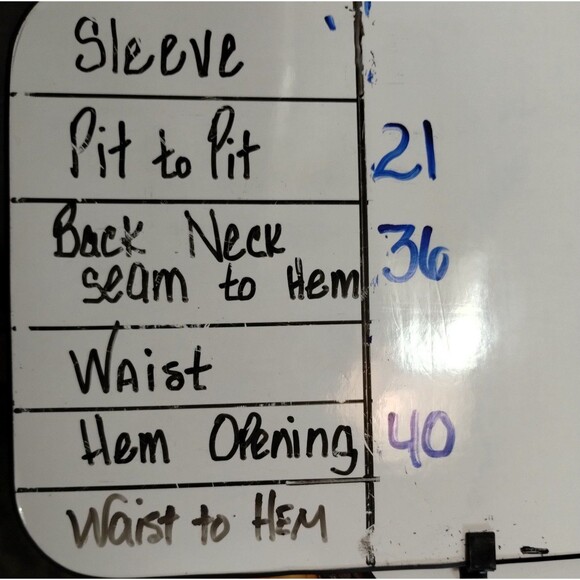 Sleeve
Pit to Pit 21
Back Neck
seam to Hem 36
Waist
Hem Opening 40
Waist to HEM